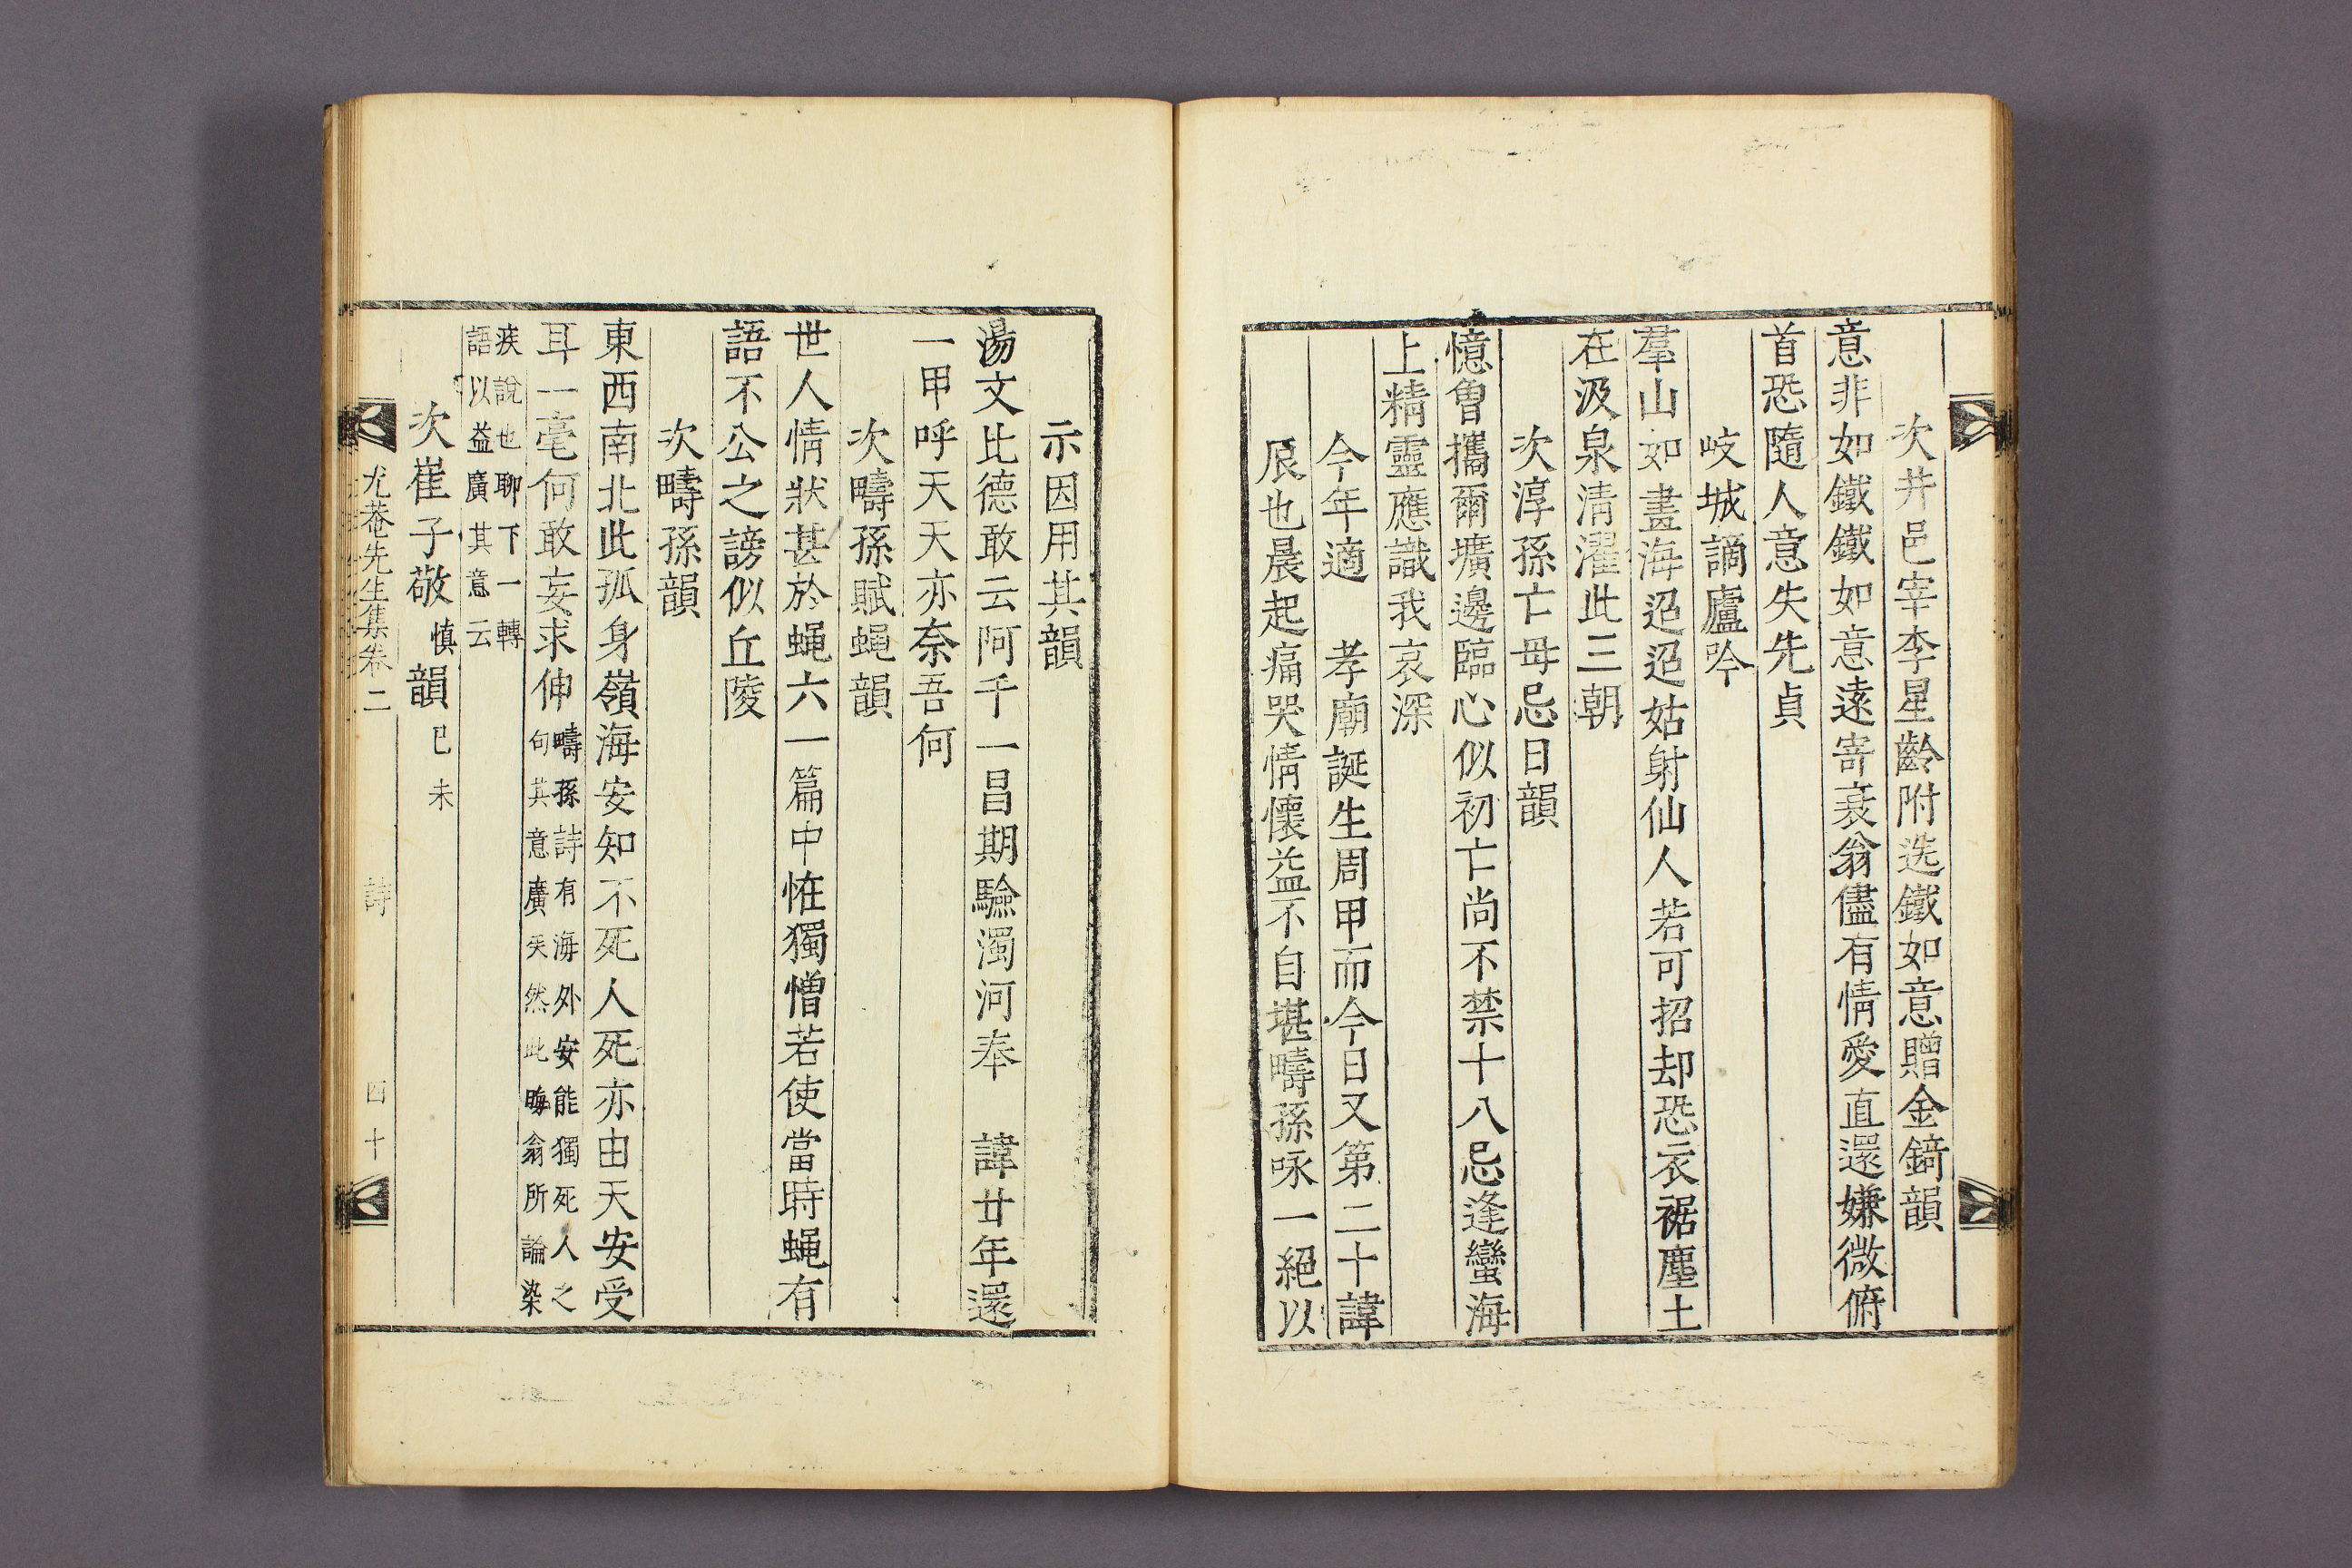 次井邑宰李星齡附送鐵如意贈金錡韻
意非如鐵鐵如意遠寄衰翁儘有情愛直還嫌微俯
首恐隨人意失先貞
岐城謫廬吟
羣山如畫海迢迢姑射仙人若可招却恐衣裾塵土
在汲泉淸濯此三朝
次淳孫亡母忌日韻
憶曾攜爾壙邊臨心似初亡尚不禁十八忌逢蠻海
上精靈應識我哀深
今年適 孝廟誕生周甲而今日又第二十諱
辰也晨起痛哭情懷益不自堪疇孫咏一絕以
示因用其韻
湯文比德敢云阿千一昌期驗濁河奉 諱廿年還
一甲呼天天亦奈吾何
次疇孫賦蠅韻
世人情狀甚於蝇六一篇中恠獨憎若使當時蝇有
語不公之謗似丘陵
次疇孫韻
東西南北此孤身嶺海安知不死人死亦由天安受
耳一毫何敢妄求伸 疇孫詩有海外安能獨死人之
句其意廣矣然此晦翁所論染
疾說也聊下一轉
語以益廣其意云
次崔子敬 愼 韻 己未
尤菴先生集卷二 詩 四十